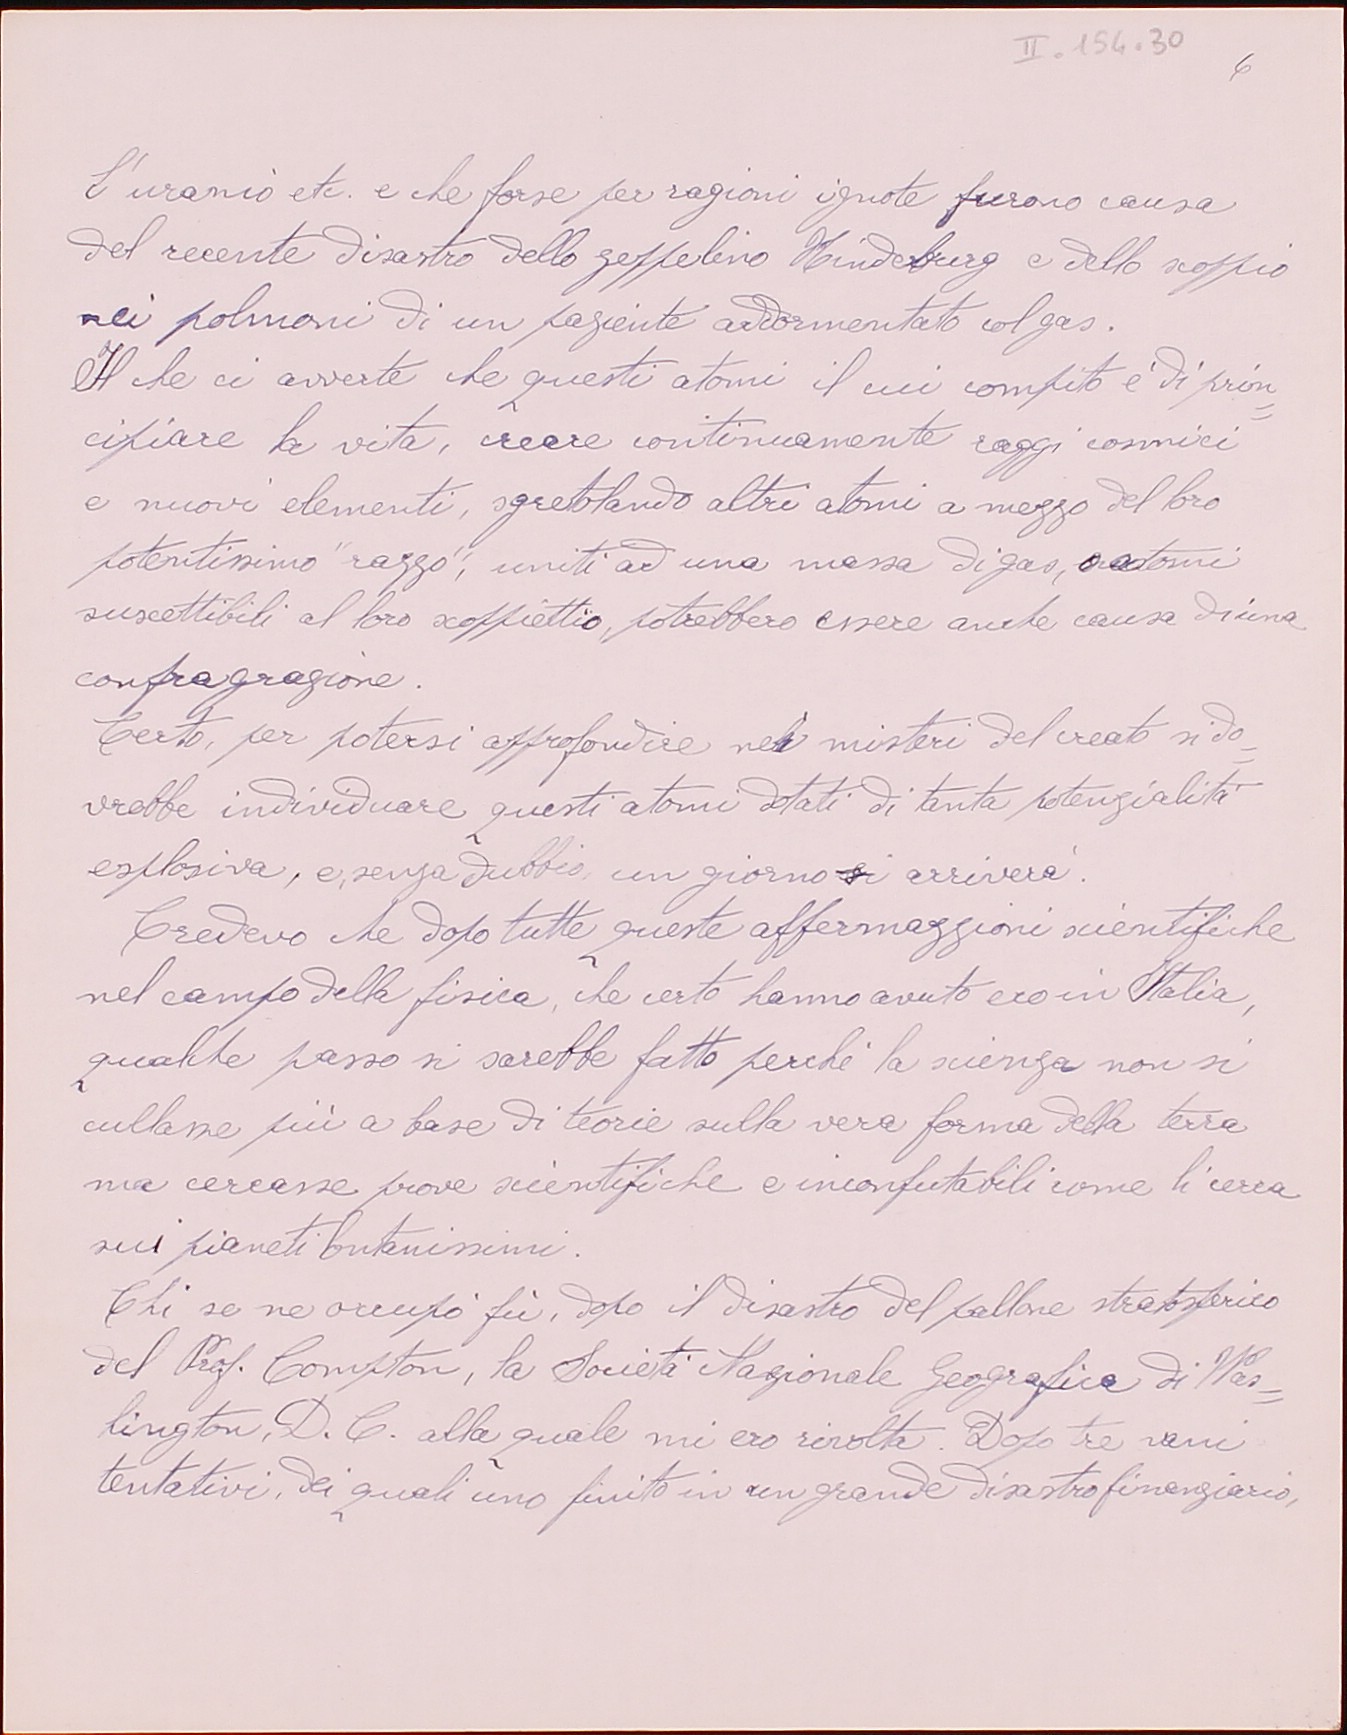 II.154.30
6
L'uranio etc. e che forse per ragioni ignote furono causa
del recente disastro dello zeppelino Hindeburg e dello scoppio
nei polmoni di un paziente addormentato col gas.
Il che ci avverte che questi atomi il cui compito é di prin=
cipiare la vita, creare continuamente raggi cosmici
e nuovi elementi, sgretolando altri atomi a mezzo del loro
potentissimo "razzo", uniti ad una massa di gas, o atomi
suscettibili al loro scoppiettio, potrebbero essere anche causa di una
confragrazione.
Certo, per potersi approfondire nei misteri del creato si do=
vrebbe individuare questi atomi dotati di tanta potenzialitá
esplosiva, e, senza dubbio, un giorno si arriverá.
Credevo che dopo tutte queste affermazzioni scientifiche
nel campo della fisica, che certo hanno avuto eco in Italia,
qualche passo si sarebbe fatto perché la scienza non si
cullasse piú a base di teorie sulla vera forma della terra
ma cercasse prove scientifiche e inconfutabili come li cerca
sui pianeti lontanissimi.
Chi se ne occupó fú, dopo il disastro del pallone stratosferico
del Prof. Compton, la Societá Nazionale Geografica di Was=
hington, D. C. alla quale mi ero rivolta. Dopo tre vani
tentativi, dei quali uno finito in un grande disastro finanziario,